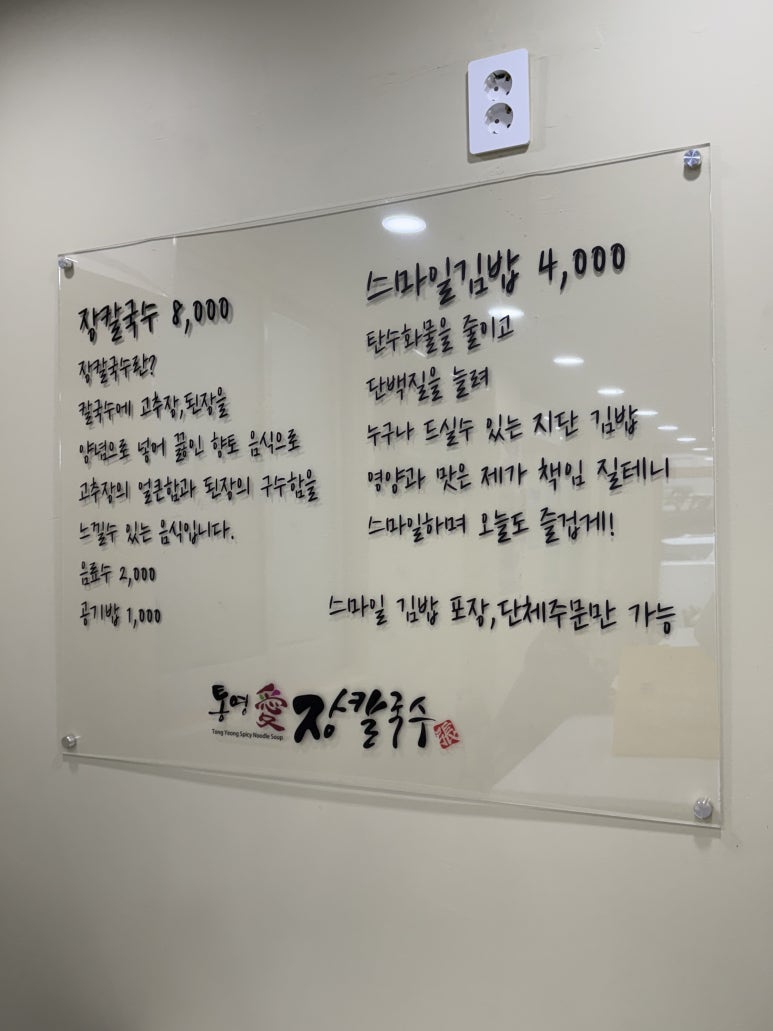 장칼국수 8,000
장칼국수란?
칼국수에 고추장,된장을
양념으로 넣어 끓인 향토 음식으로
고추장의 얼큰함과 된장의 구수함을
느낄수 있는 음식입니다.
음료수 2,000
공기밥 1,000
스마일김밥 4,000
탄수화물을 줄이고
단백질을 늘려
누구나 드실수 있는 지단 김밥
영양과 맛은 제가 책임 질테니
스마일하며 오늘도 즐겁게!
스마일 김밥 포장,단체주문만 가능
통영 愛 장칼국수 張
Tong Yeong Spicy Noodle Soup